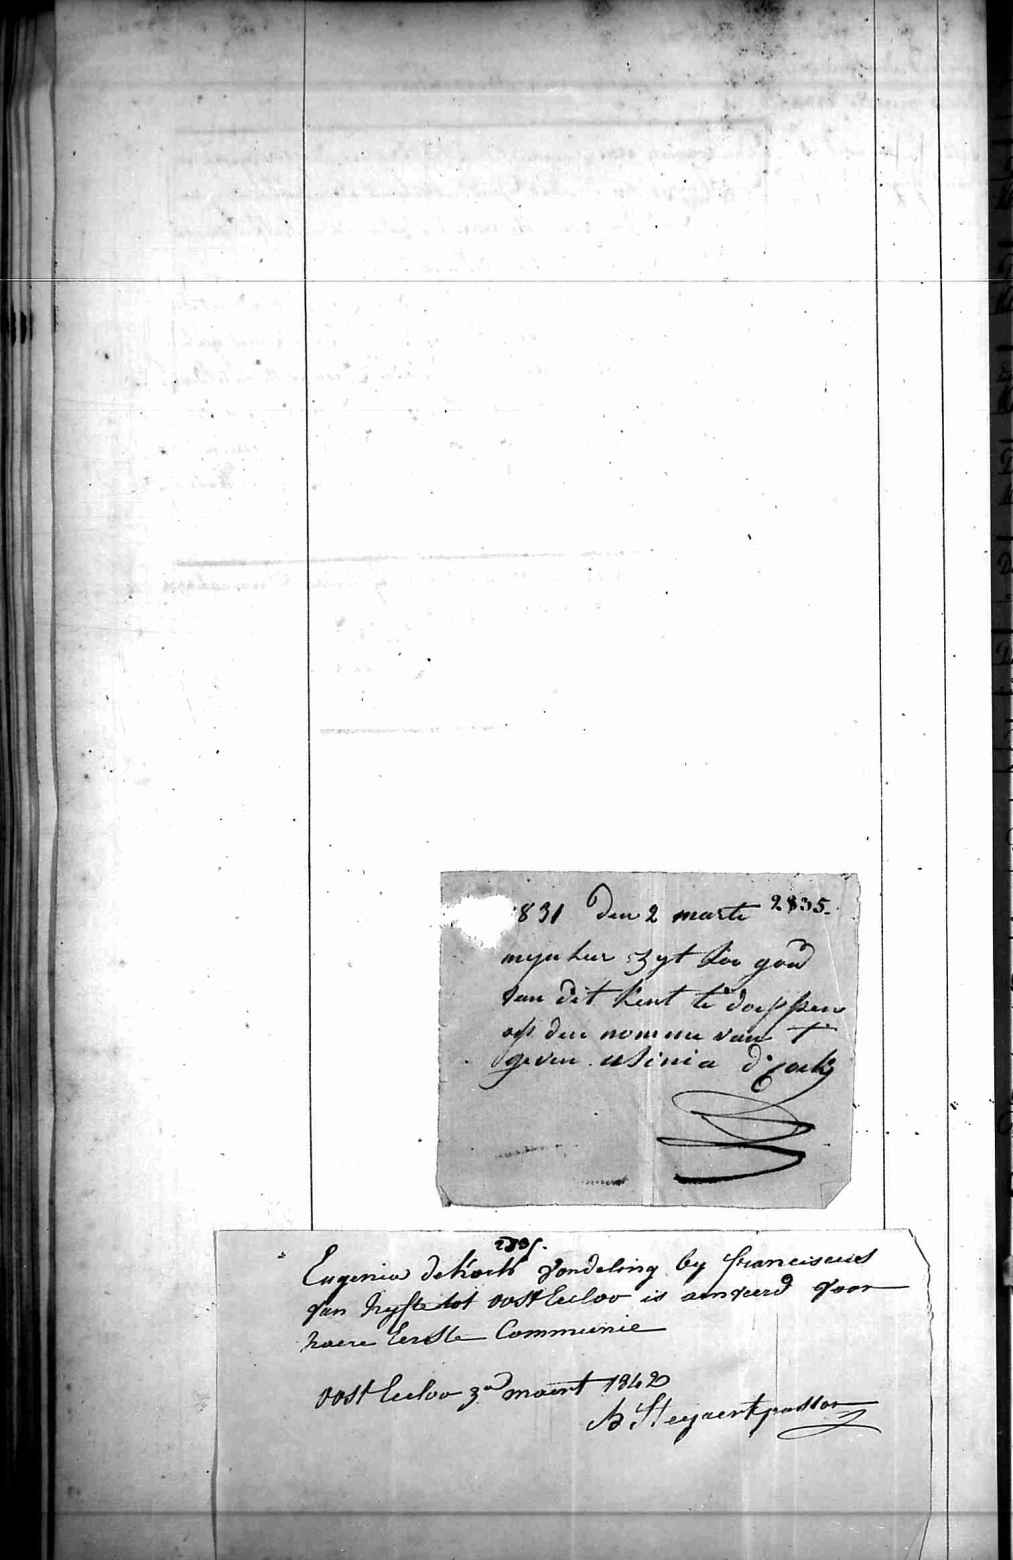 831 den 2 marte 2835.
mynheer zyt soo goed
van dit kint te doeppen
op den nomme van T
geven usinia d'cock
2835.
Eugenia deKock vondeling by franciscus
van hyfte tot oost Eecloo is aenveerd voor
haere Eerste Communie
oost Eecloo 3en maert 1842
B Steyaert pastor